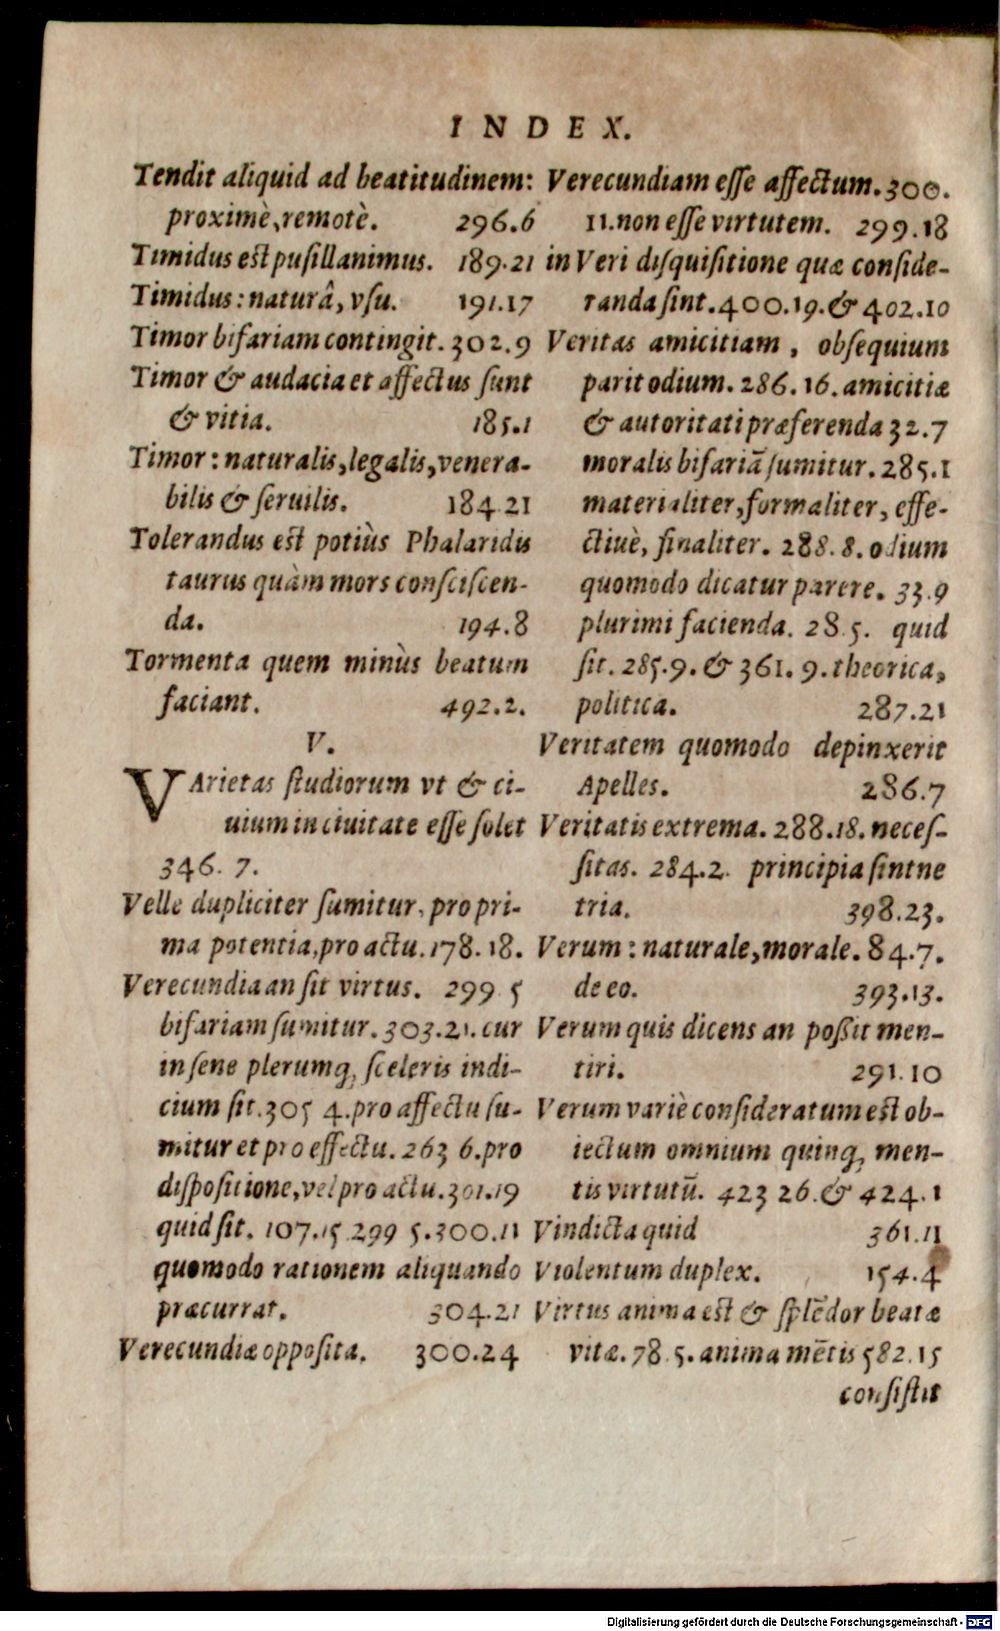 INDEX.
Tendit aliquid ad beatitudinem:
proximè, remotè. 296.6
Timidus est pusillanimus. 189.21
Timidus: naturâ, vsu. 191.17
Timor bifariam contingit. 302.9
Timor & audacia et affectus sunt
& vitia. 185.1
Timor: naturalis, legalis, venera-
bilis & seruilis. 184.21
Tolerandus est potiùs Phalaridis
taurus quàm mors consciscen-
da. 194.8
Tormenta quem minùs beatum
faciant. 492.2.
V.
VArietas studiorum vt & ci-
uium in ciuitate esse solet
346. 7.
Velle dupliciter sumitur, pro pri-
ma potentia, pro actu. 178.18.
Verecundia an sit virtus. 299 5
bifariam sumitur. 303.21. cur
in sene plerumq; sceleris indi-
cium sit. 305 4. pro affectu su-
mitur et pro effectu. 263 6. pro
dispositione, vel pro actu. 301.19
quid sit. 107.15 299 5. 300.11
quomodo rationem aliquando
præcurrat. 304.21
Verecundiæ opposita. 300.24
Verecundiam esse affectum. 300.
11. non esse virtutem. 299.18
in Veri disquisitione quæ conside-
randa sint. 400.19. & 402.10
Veritas amicitiam, obsequium
parit odium. 286. 16. amicitiæ
& autoritati præferenda 32.7
moralis bifariā sumitur. 285.1
materialiter, formaliter, effe-
ctiuè, finaliter. 288.8. odium
quomodo dicatur parere. 33.9
plurimi facienda. 28 5. quid
sit. 285.9. & 361. 9. theorica,
politica. 287.21
Veritatem quomodo depinxerit
Apelles. 286.7
Veritatis extrema. 288.18. neces-
sitas. 284.2. principia sintne
tria. 398.23.
Verum: naturale, morale. 84.7.
de eo. 393.13.
Verum quis dicens an poßit men-
tiri. 291.10
Verum variè consideratum est ob-
iectum omnium quinq; men-
tis virtutū. 423 26. & 424.1
Vindicta quid 361.11
Violentum duplex. 154.4
Virtus anima est & splēdor beatæ
vitæ. 78 5. anima mētis 582.15
consistit
Digitalisierung gefördert durch die Deutsche Forschungsgemeinschaft - DFG